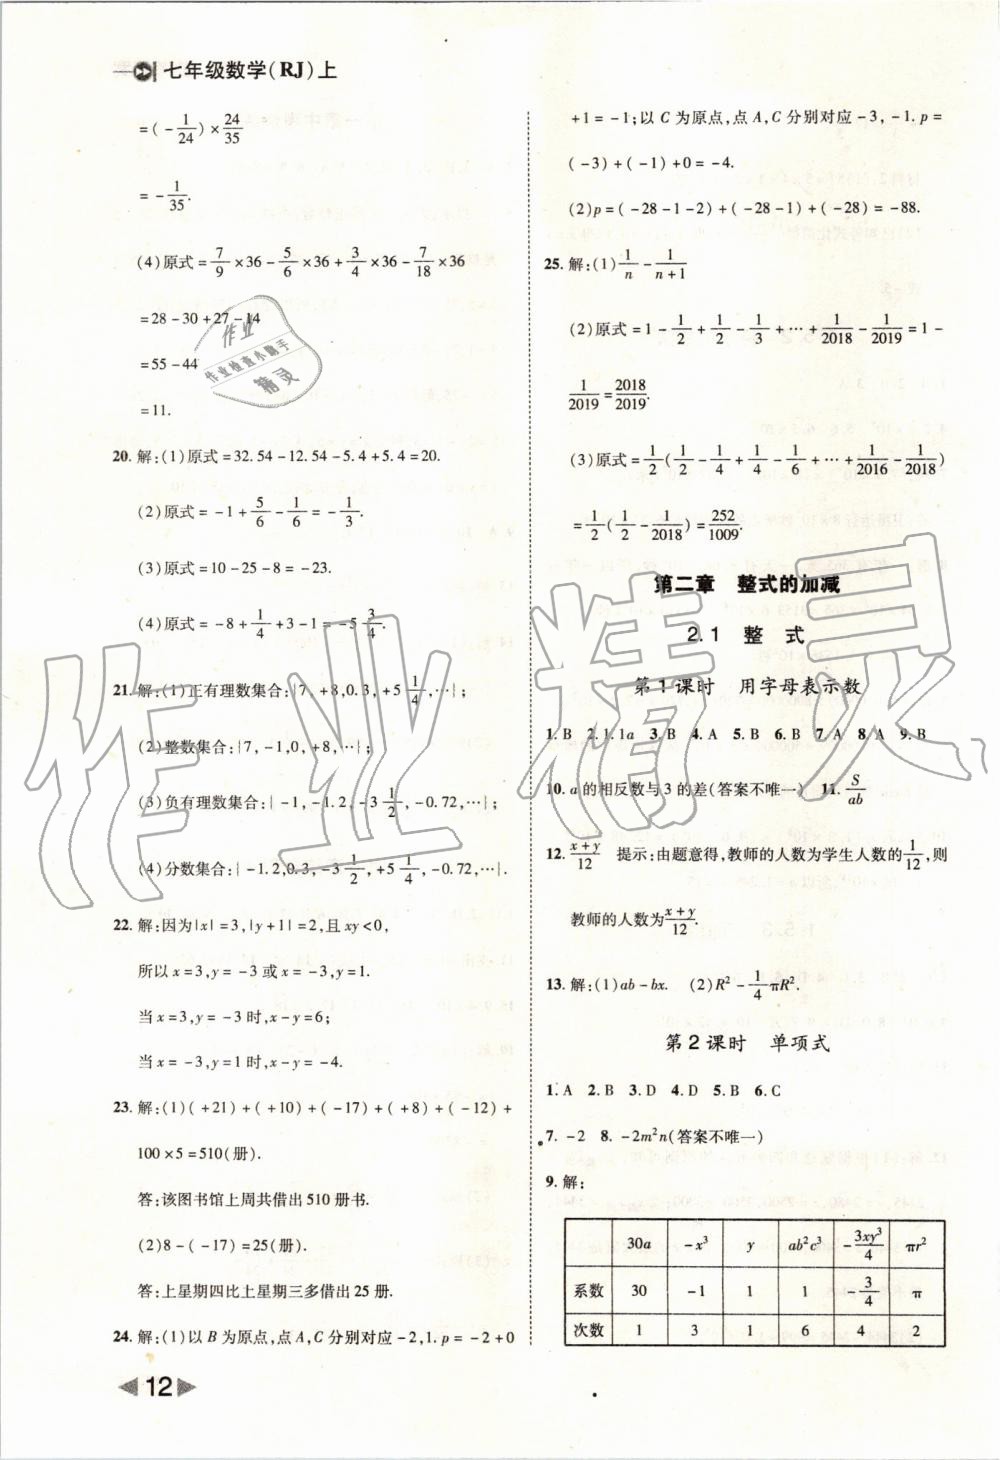 七年级数学(RJ)上
=(-1/24)×24/35
=-1/35.
(4)原式=7/9×36-5/6×36+3/4×36-7/18×36
=28-30+27-14
=55-44
=11.
20.解:(1)原式=32.54-12.54-5.4+5.4=20.
(2)原式=-1+5/6-1/6=-1/3.
(3)原式=10-25-8=-23.
(4)原式=-8+1/4+3-1=-5 3/4.
21.解:(1)正有理数集合:{7,+8,0.3,+5 1/4,…};
(2)整数集合:{7,-1,0,+8,…};
(3)负有理数集合:{-1,-1.2,-3 1/2,-0.72,…};
(4)分数集合:{-1.2,0.3,-3 1/2,+5 1/4,-0.72,…}.
22.解:因为|x|=3,|y+1|=2,且xy<0,
所以x=3,y=-3或x=-3,y=1.
当x=3,y=-3时,x-y=6;
当x=-3,y=1时,x-y=-4.
23.解:(1)(+21)+(+10)+(-17)+(+8)+(-12)+
100×5=510(册).
答:该图书馆上周共借出510册书.
(2)8-(-17)=25(册).
答:上星期四比上星期三多借出25册.
24.解:(1)以B为原点,点A,C分别对应-2,1.p=-2+0
12
+1=-1;以C为原点,点A,C分别对应-3,-1.p=
(-3)+(-1)+0=-4.
(2)p=(-28-1-2)+(-28-1)+(-28)=-88.
25.解:(1)1/n-1/(n+1)
(2)原式=1-1/2+1/2-1/3+…+1/2018-1/2019=1-
1/2019=2018/2019.
(3)原式=1/2(1/2-1/4+1/4-1/6+…+1/2016-1/2018)
=1/2(1/2-1/2018)=252/1009.
第二章 整式的加减
2.1 整 式
第1课时 用字母表示数
1.B 2.1.1a 3.B 4.A 5.B 6.B 7.A 8.A 9.B
10.a的相反数与3的差(答案不唯一) 11.S/ab
12.(x+y)/12 提示:由题意得,教师的人数为学生人数的1/12,则
教师的人数为(x+y)/12.
13.解:(1)ab-bx. (2)R²-1/4πR².
第2课时 单项式
1.A 2.B 3.D 4.D 5.B 6.C
7.-2 8.-2m²n(答案不唯一)
9.解:
30a -x³ y ab²c³ -3xy³/4 πr²
系数 30 -1 1 1 -3/4 π
次数 1 3 1 6 4 2
作业
作业检查小助手
精灵
作业精灵